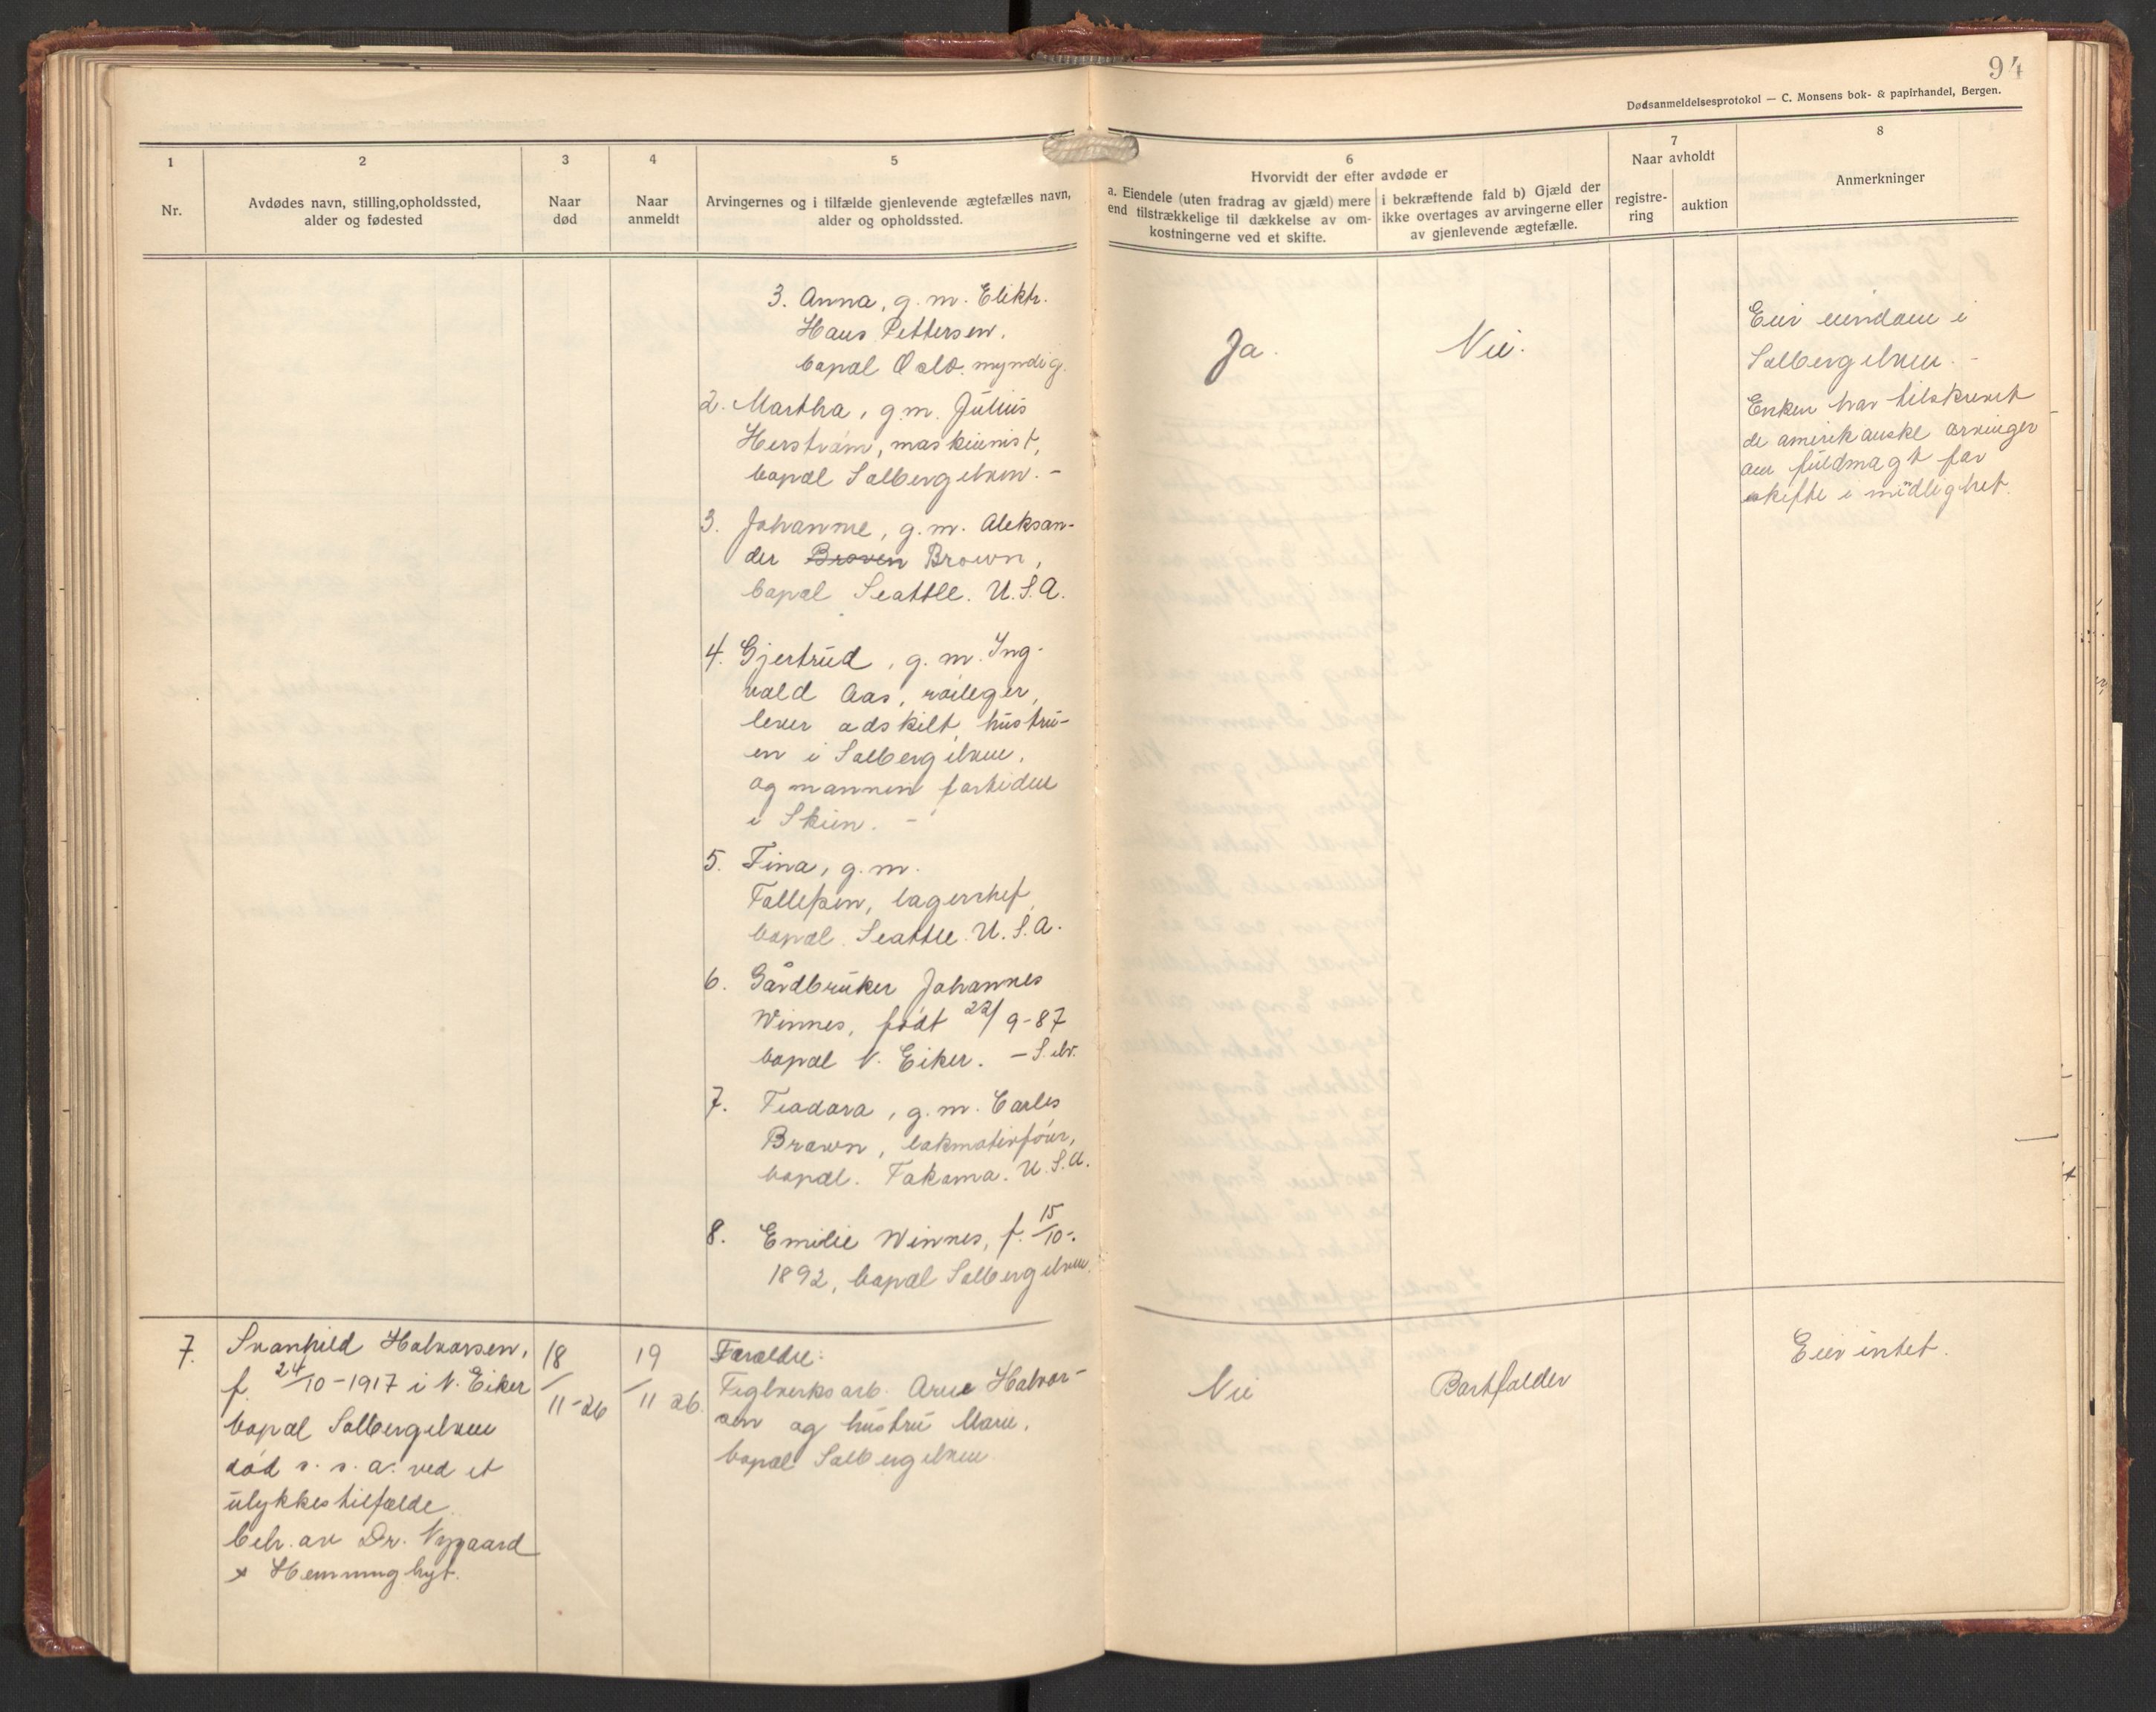 94
Dødsanmeldelsesprotokol — C. Monsens bok- & papirhandel, Bergen.
1
Nr.
2
Avdødes navn, stilling, opholdssted,
alder og fødested
3
Naar
død
4
Naar
anmeldt
5
Arvingernes og i tilfælde gjenlevende ægtefælles navn,
alder og opholdssted.
6
Hvorvidt der efter avdøde er
a. Eiendele (uten fradrag av gjæld) mere
end tilstrækkelige til dækkelse av om-
kostningerne ved et skifte.
i bekræftende fald b) Gjæld der
ikke overtages av arvingerne eller
av gjenlevende ægtefælle.
7
Naar avholdt
registre-
ring
auktion
8
Anmerkninger
3. Anna, g. m. Elektr.
Hans Pettersen,
bopæl Oslo. myndig.
2. Martha, g. m. Julius
Herstrøm, maskinist,
bopæl Solbergelven. -
3. Johanne, g. m. Aleksan-
der Broven Brown,
bopæl Seattle. U.S.A.
4. Gjertrud, g. m. Ing-
vald Aas,
lever adskilt, hustru-
en i Solbergelven,
og mannen fortiden
i Skien. -
5. Tina, g. m.
Tollefsen, lagerchef,
bopæl. Seattle. U.S.A.
6. Gårdbruker Johannes
Winnes, født 22/9-87
bopæl N. Eiker. - S.elv.
7. Teodora, g. m. Carles
Brown, lokmotivfører,
bopæl. Takoma. U.S.A.
8. Emilie Winnes, f. 15/10-
1892, bopæl Solbergelven.
Ja.
Nei.
Eier eiendom i
Solbergelven. -
Enken har tilskrevet
de amerikanske arvinger
om fuldmagt for
skifte i mindelighet.
7.
Svanhild Halvorsen,
f. 24/10-1917 i N. Eiker
bopæl Solbergelven
død s. s. a: ved et
ulykkestilfælde.
beh. av Dr. Nygaard
x Hemminghyt.
18/11-26
19/11 26.
Forældre:
Teglverksarb. Arne Halvor-
sen og hustru Marie,
bopæl Solbergelven
Nei
Bortfalder
Eier intet.